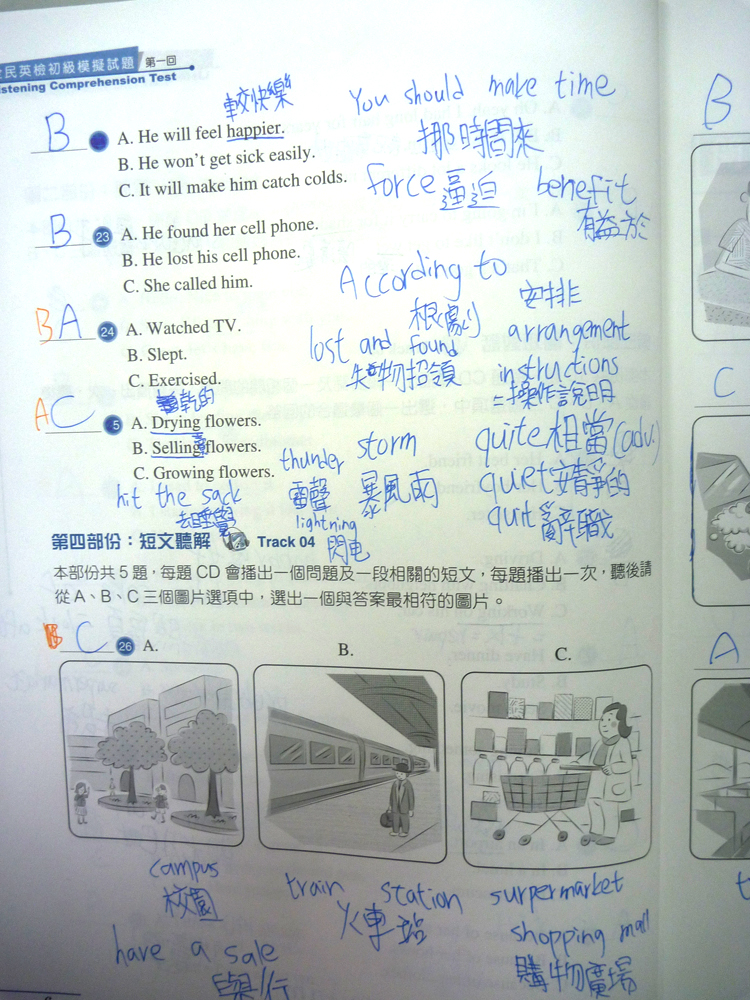 全民英檢初級模擬試題 第一回
istening Comprehension Test
較快樂
You should make time
挪時間來
B
A. He will feel happier.
B. He won't get sick easily.
C. It will make him catch colds.
force 逼迫
benefit
有益於
B 23 A. He found her cell phone.
B. He lost his cell phone.
C. She called him.
According to
根據
B A 24 A. Watched TV.
B. Slept.
C. Exercised.
lost and found
失物招領
安排
arrangement
instructions
操作說明
乾的
A C 5 A. Drying flowers.
B. Selling flowers.
C. Growing flowers.
thunder
雷聲
storm
暴風雨
lightning
閃电
quite 相當(adv.)
quiet 安靜的
quit 辭職
hit the sack
去睡覺
第四部份：短文聽解 Track 04
本部份共5題，每題CD會播出一個問題及一段相關的短文，每題播出一次，聽後請
從A、B、C三個圖片選項中，選出一個與答案最相符的圖片。
B C 26 A.
B.
C.
campus
校園
train station
火車站
surpermarket
shopping mall
購物廣場
have a sale
舉行
B
C
A